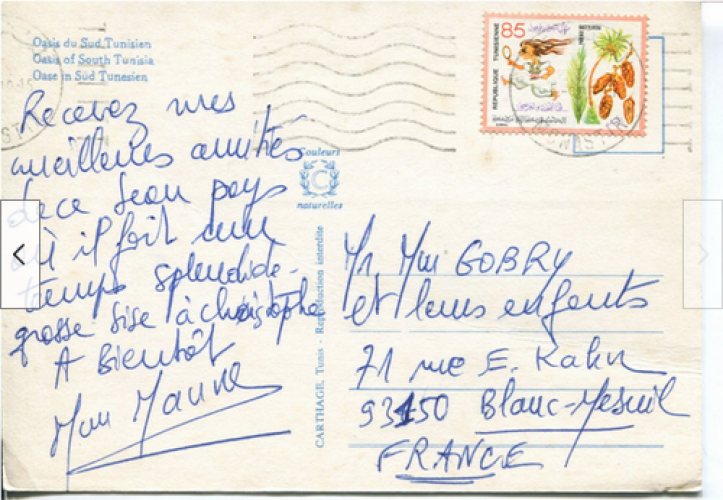 Oasis du Sud Tunisien
Oasis of South Tunisia
Oase in Süd Tunesien
85
REPUBLIQUE TUNISIENNE
Couleurs
C
naturelles
CARTHAGE, Tunis - Reproduction interdite
Recevez mes
meilleures amitiés
de ce beau pays
où il fait un
temps splendide.
grosse bise à christophe
A Bientôt
Mr. Mme GOBRY
et leurs enfants
71 rue E. Kahn
93150 Blanc-Mesnil
FRANCE